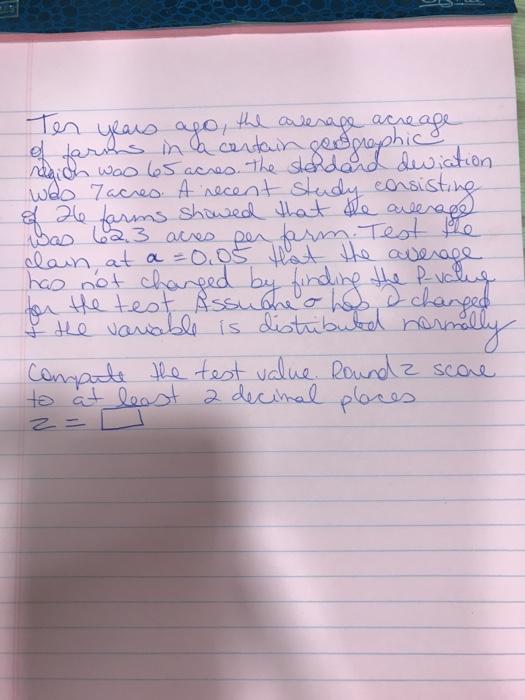 Ten years ago, the average acreage
of farms in a certain geographic
region was 65 acres. The standard deviation
was 7 acres. A recent study consisting
of 26 farms showed that the average
was 62.3 acres per farm. Test the
claim, at α = 0.05 that the average
has not changed by finding the P-value
for the test. Assume σ has changed
& the variable is distributed normally
Compute the test value. Round z score
to at least 2 decimal places
z =